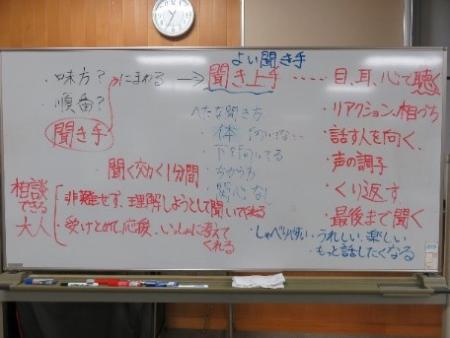 よい聞き手
・味方?
にまわる → 聞き上手 ‥‥ 目、耳、心で聴く
・順番?
聞き手
へたな聞き方
・リアクション、相づち
・体
・話す人を向く
・下を向いてる
・声の調子
聞く効く1分間
・関心なし
・くり返す
・最後まで聞く
相談できる大人
・非難せず、理解しようとして聞いてくれる
・受けとめて、応援、いっしょに考えてくれる
・しゃべりやすい・うれしい、楽しい
・もっと話したくなる